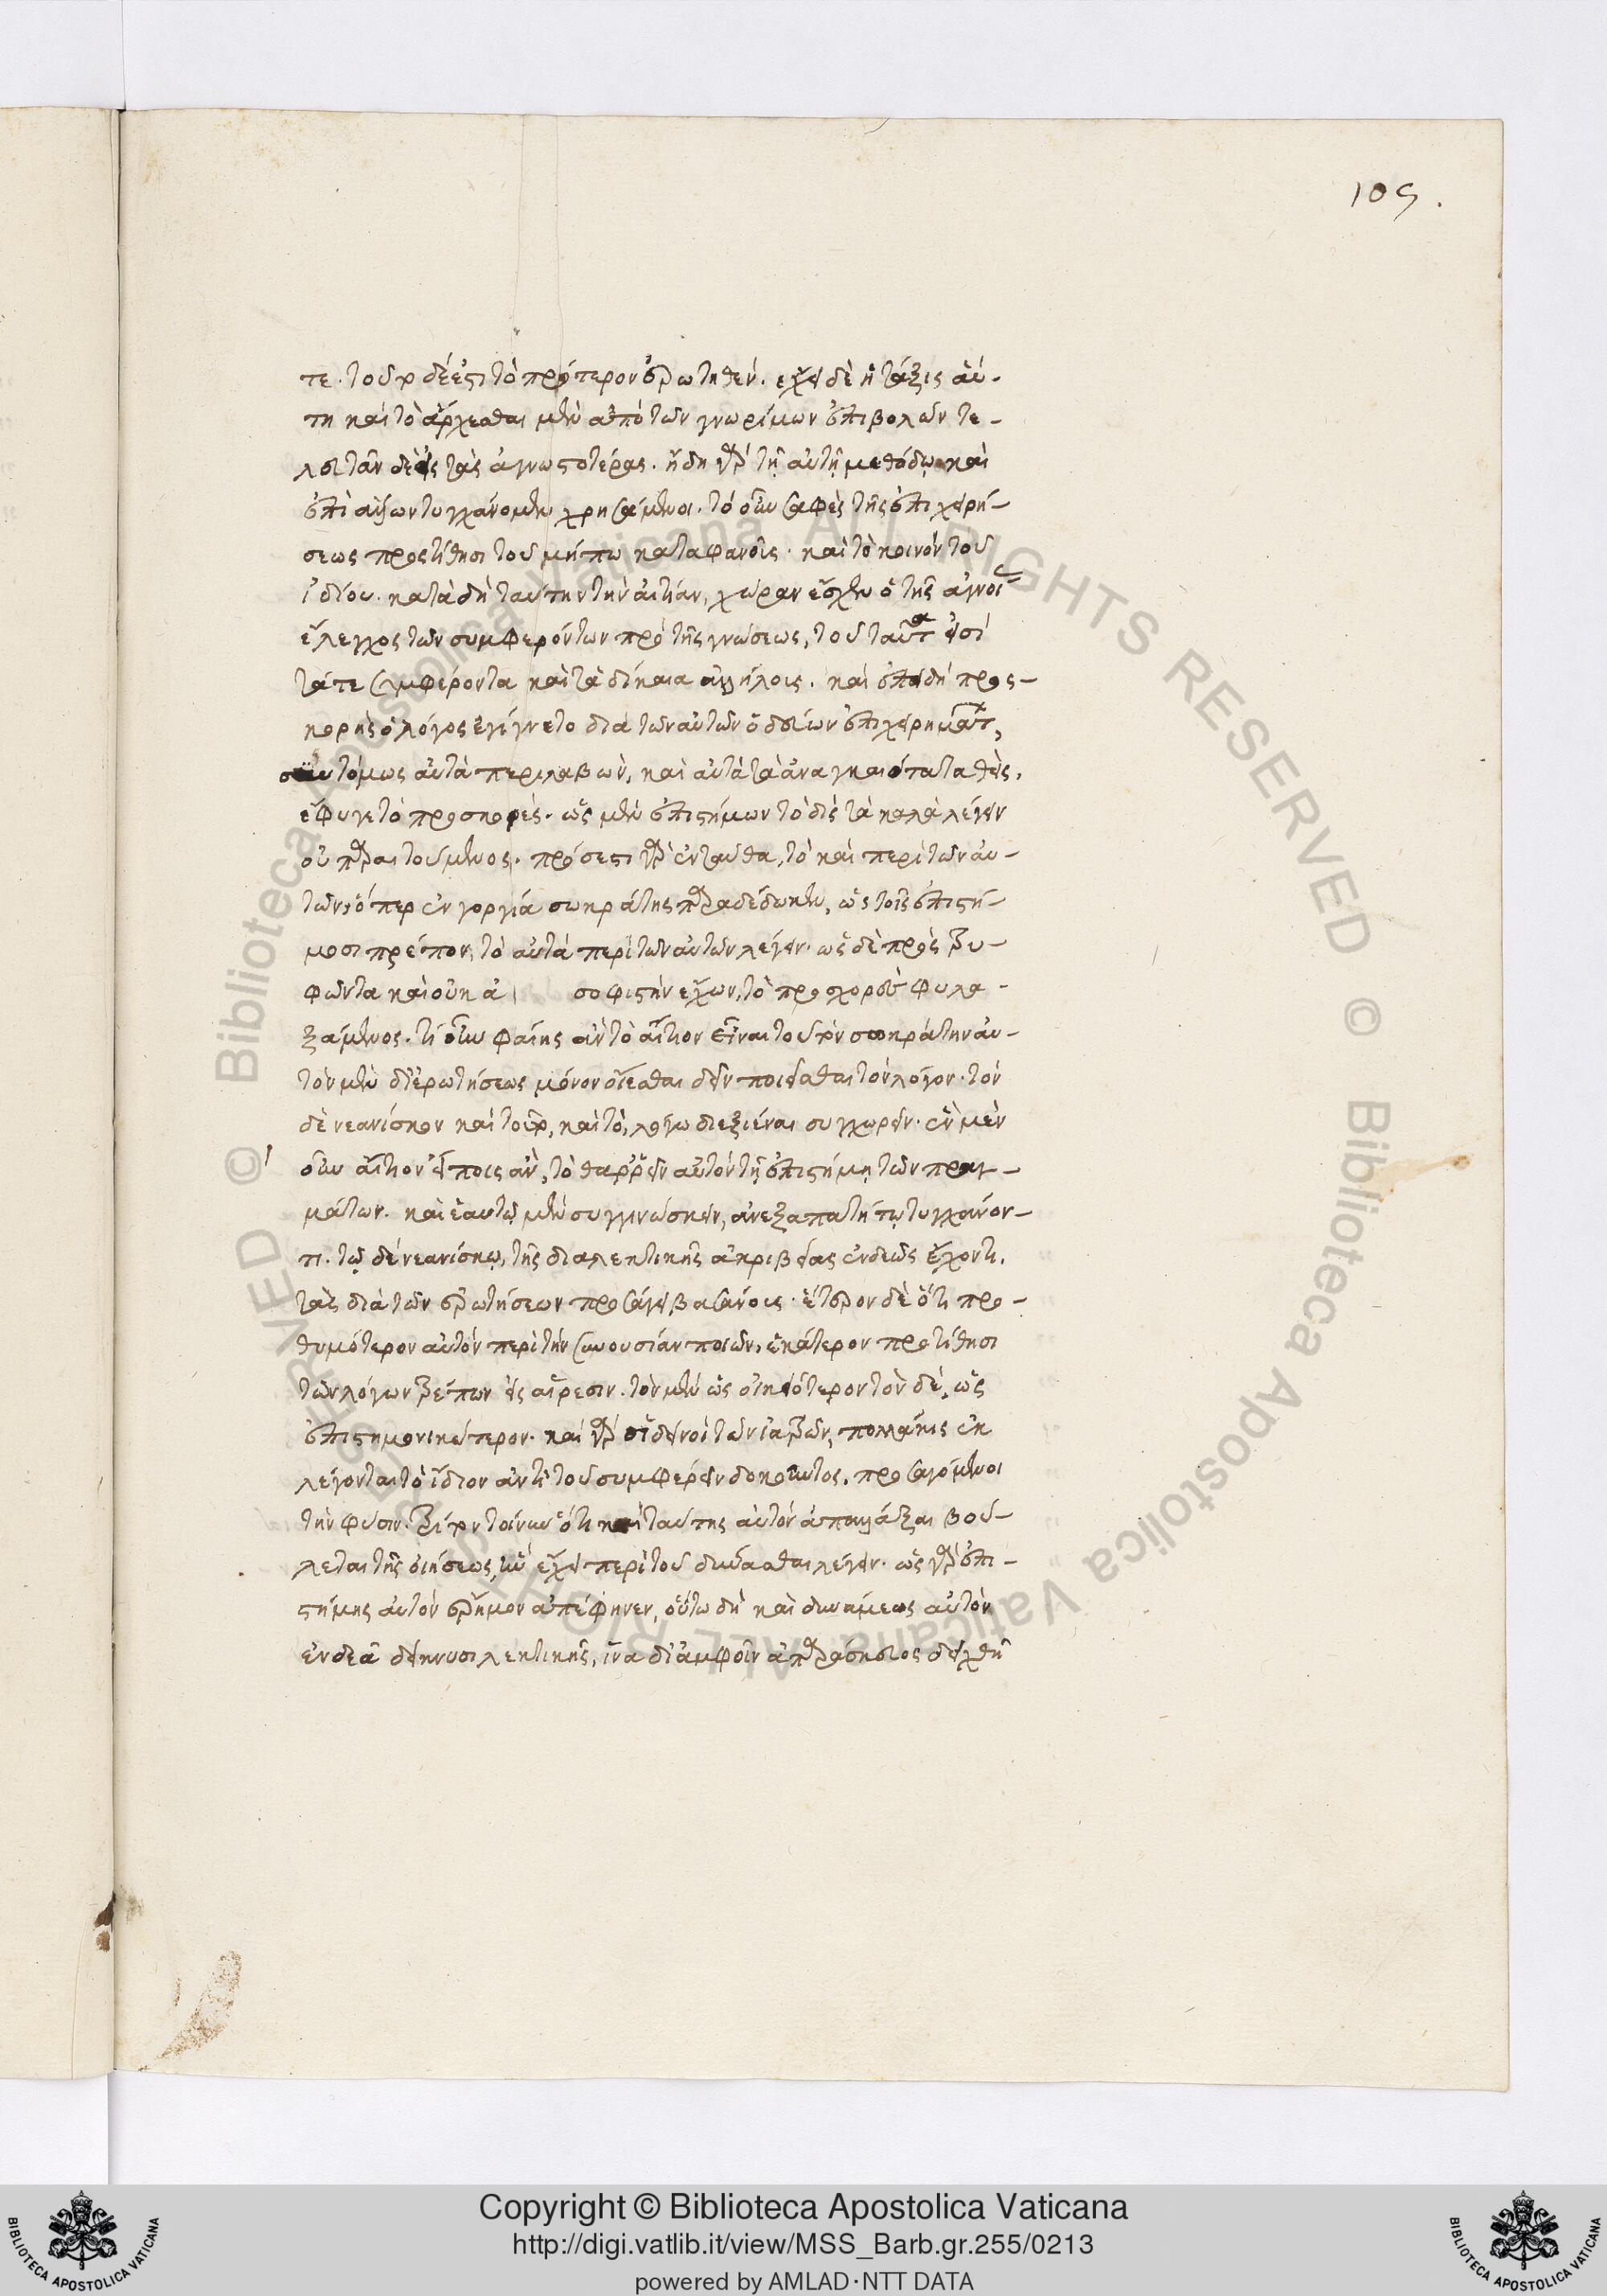 105.
τε. τοῦτο δέ ἐστι τὸ πρότερον ἐρωτηθέν. ἔχει δὲ ἡ τάξις αὕ-
τη καὶ τὸ ἄρχεσθαι μὲν ἀπὸ τῶν γνωρίμων ἐπιβολῶν τε-
λευτᾶν δὲ εἰς τὰς ἀγνωστοτέρας. ἤδη γὰρ τῇ αὐτῇ μεθόδῳ καὶ
ἐπὶ ἄλλων τυγχάνομεν χρησάμενοι. τὸ οὖν σαφὲς τῆς ἐπιχειρή-
σεως προστίθησι τοῦ μήπω καταφανοῦς. καὶ τὸ κοινὸν τοῦ
ἰδίου. κατὰ δὴ ταύτην τὴν αἰτίαν, χώραν ἔσχεν ὁ τῆς ἀγνοίας
ἔλεγχος τῶν συμφερόντων πρὸ τῆς γνώσεως, τοῦ ταῦτα εἰσὶ
τά τε συμφέροντα καὶ τὰ δίκαια ἀλλήλοις. καὶ ἐπειδὴ προς-
κορὴς ὁ λόγος ἐγίγνετο διὰ τῶν αὐτῶν ὁδεύων ἐπιχειρημάτων,
συντόμως αὐτὰ περιλαβών, καὶ αὐτὰ τὰ ἀναγκαιότατα θεὶς,
ἔφυγε τὸ προσκορές. ὡς μὲν ἐπιστήμων τὸ δὶς τὰ καλὰ λέγειν
οὐ παραιτούμενος. πρόσεστι γὰρ ἐνταῦθα, τὸ καὶ περὶ τῶν αὐ-
τῶν, ὅπερ ἐν γοργίᾳ σωκράτης παραδέδωκεν, ὡς τοῖς ἐπιστή-
μοσι πρέπον, τὸ αὐτὰ περὶ τῶν αὐτῶν λέγειν. ὡς δὲ πρὸς τρυ-
φῶντα καὶ οὐκ ἀ σοφιστὴν ἔχων, τὸ προσχορὲς φυλα-
ξάμενος. τί οὖν φαίης ἂν τὸ αἴτιον εἶναι τοῦ τὸν σωκράτην αὐ-
τὸν μὲν δι' ἐρωτήσεως μόνον οἴεσθαι δεῖν ποιεῖσθαι τὸν λόγον. τὸν
δὲ νεανίσκον καὶ τοῦτο, καὶ τὸ, λόγῳ διεξιέναι συγχωρεῖν. ἓν μὲν
οὖν αἴτιον εἴποις ἂν, τὸ θαρρεῖν αὐτὸν τῇ ἐπιστήμῃ τῶν πραγ-
μάτων. καὶ ἑαυτῷ μὲν συγγινώσκειν, ἀνεξαπατήτῳ τυγχάνον-
τι. τῷ δὲ νεανίσκῳ, τῆς διαλεκτικῆς ἀκριβείας ἐνδεῶς ἔχοντι,
τὰς διὰ τῶν ἐρωτήσεων προσάγει βασάνους. ἕτερον δὲ ὅτι προ-
θυμότερον αὐτὸν περὶ τὴν συνουσίαν ποιῶν, ἑκάτερον προτίθησι
τῶν λόγων τρέπων εἰς αἵρεσιν. τὸν μὲν ὡς οἰκειότερον τὸν δὲ, ὡς
ἐπιστημονικώτερον. καὶ γὰρ οἱ δεινοὶ τῶν ἰατρῶν, πολλάκις ἐκ
λέγονται τὸ ἴδιον ἀντὶ τοῦ συμφέρειν δοκοῦντος, προσαγόμενοι
τὴν φύσιν. τρίτον τοίνυν ὅτι καὶ ταύτης αὐτὸν ἀπαλλάξαι βού-
λεται τῆς οἰήσεως, ἣν ἔχει περὶ τοῦ δύνασθαι λέγειν. ὡς γὰρ ἐπι-
στήμης αὐτὸν ἔρημον ἀπέφηνεν, οὕτω δὴ καὶ δυνάμεως αὐτὸν
ἐνδεᾶ δείκνυσι λεκτικῆς, ἵνα δι' ἀμφοῖν ἀπαράσκευος δειχθῇ
Copyright © Biblioteca Apostolica Vaticana
http://digi.vatlib.it/view/MSS_Barb.gr.255/0213
powered by AMLAD·NTT DATA